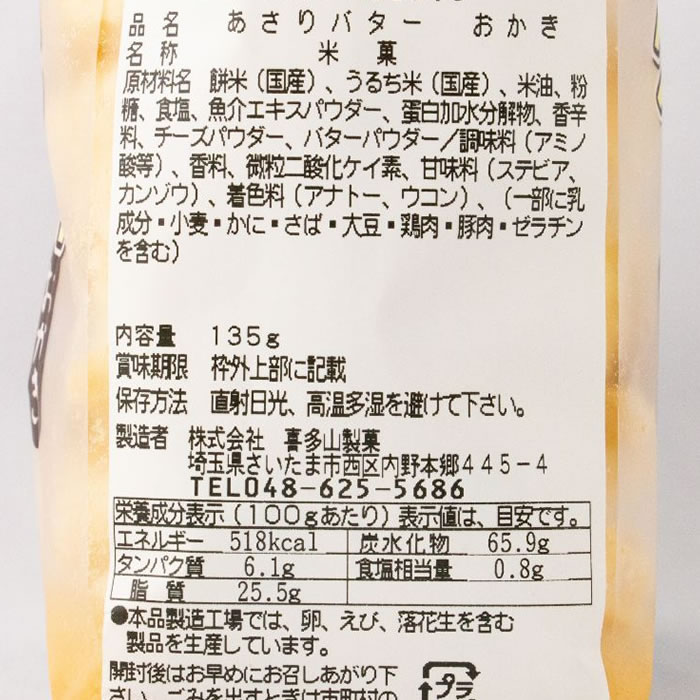 品名 あさりバター おかき
名称 米菓
原材料名 餅米（国産）、うるち米（国産）、米油、粉
糖、食塩、魚介エキスパウダー、蛋白加水分解物、香辛
料、チーズパウダー、バターパウダー／調味料（アミノ
酸等）、香料、微粒二酸化ケイ素、甘味料（ステビア、
カンゾウ）、着色料（アナトー、ウコン）、（一部に乳
成分・小麦・かに・さば・大豆・鶏肉・豚肉・ゼラチン
を含む）
内容量 135g
賞味期限 枠外上部に記載
保存方法 直射日光、高温多湿を避けて下さい。
製造者 株式会社 喜多山製菓
埼玉県さいたま市西区内野本郷445-4
TEL048-625-5686
栄養成分表示（100gあたり）表示値は、目安です。
エネルギー 518kcal 炭水化物 65.9g
タンパク質 6.1g 食塩相当量 0.8g
脂質 25.5g
●本品製造工場では、卵、えび、落花生を含む
製品を生産しています。
開封後はお早めにお召しあがり下
さい。ごみを出すときは市町村の
プラ